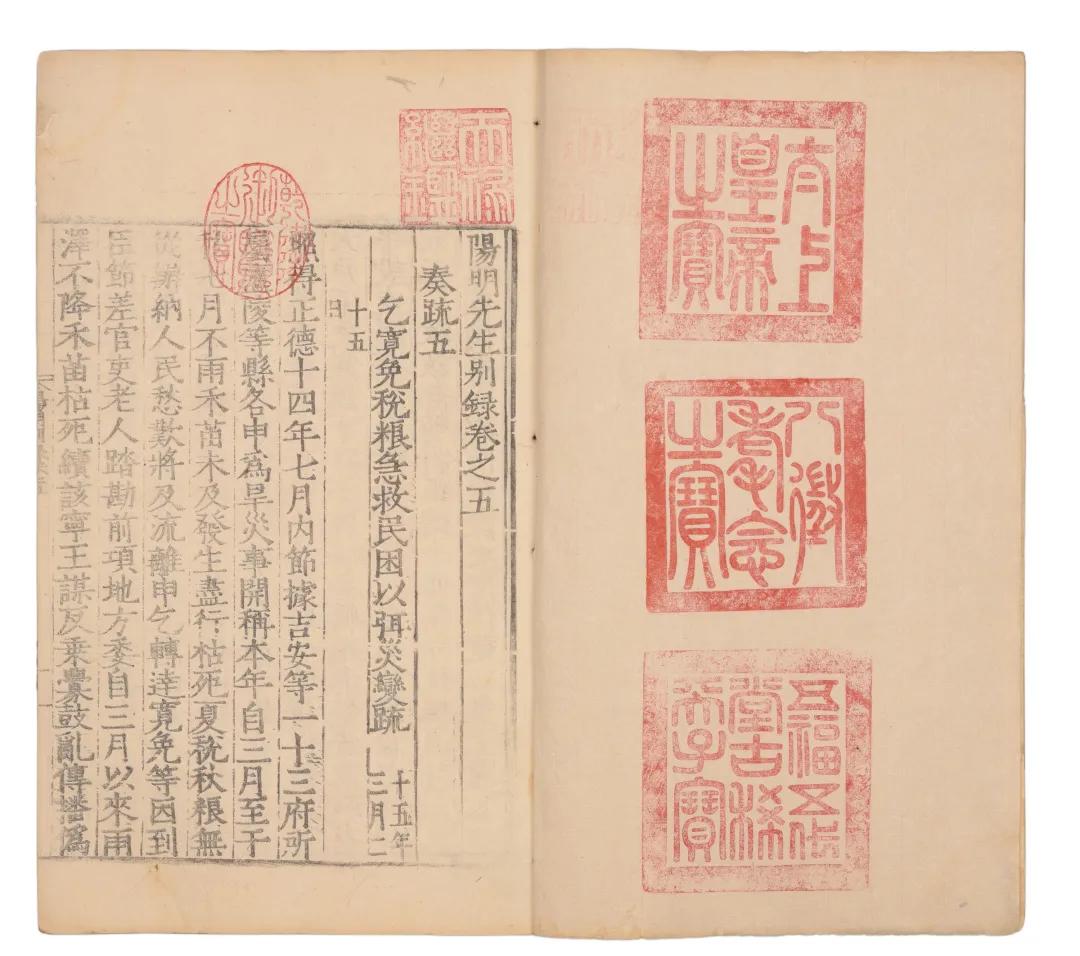 太上
皇帝
之寶
八徵
耄念
之寶
五福五代
堂古稀
天子寶
天祿
繼鑑
乾隆
御覽
之寶
陽明先生别録卷之五
奏疏五
乞寬免稅粮急救民困以弭災變疏 十五年三月二
十五日
照得正德十四年七月内節據吉安等一十三府所
屬廬陵等縣各申爲旱災事開稱本年自三月至于
秋七月不雨禾苗未及發生盡行枯死夏稅秋粮無
從辦納人民愁歎將及流離申乞轉達寬免等因到
臣節差官吏老人踏勘前項地方委自三月以來雨
澤不降禾苗枯死續該寧王謀反乗釁鼓亂傳播爲